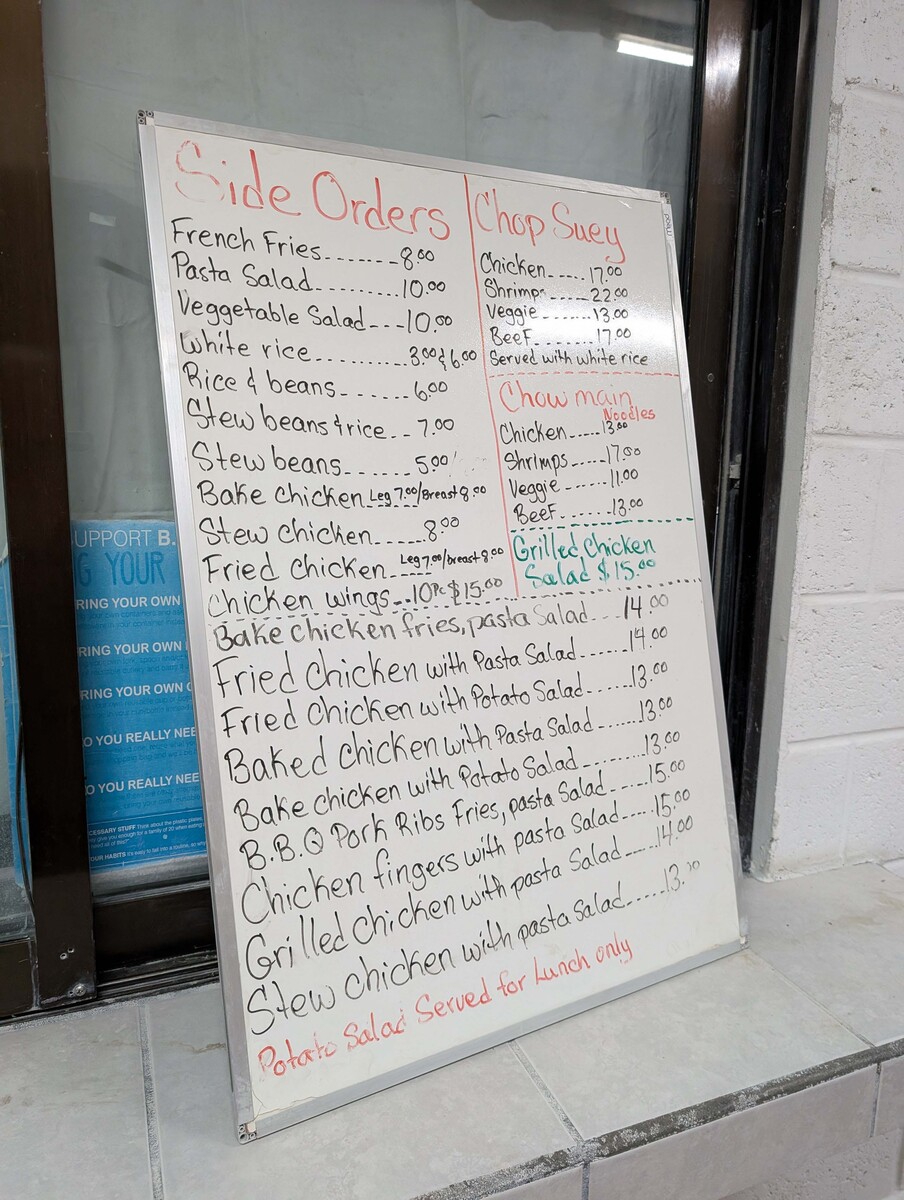 Side Orders
French Fries.......8.00
Pasta Salad.........10.00
Veggetable Salad---10.00
White rice..........3.00 & 6.00
Rice & beans.......6.00
Stew beans & rice..7.00
Stew beans......5.00
Bake chicken Leg 7.00/Breast 8.00
Stew chicken......8.00
Fried chicken Leg 7.00/breast 8.00
Chicken wings..10Pc $15.00
Chop Suey
Chicken.....17.00
Shrimps.....22.00
Veggie.......13.00
Beef........17.00
Served with white rice
Chow main
Noodles
Chicken.....13.00
Shrimps.....17.00
Veggie.......11.00
Beef.......13.00
Grilled Chicken
Salad $15.00
Bake chicken fries, pasta Salad...14.00
Fried chicken with Pasta Salad.......14.00
Fried chicken with Potato Salad......13.00
Baked chicken with Pasta Salad.......13.00
Bake chicken with Potato Salad.........13.00
B.B.Q Pork Ribs Fries, pasta Salad.....15.00
Chicken fingers with pasta Salad....15.00
Grilled chicken with pasta Salad.....14.00
Stew chicken with pasta Salad.....13.
Potato Salad Served for Lunch only
UPPORT B.
G YOUR
RING YOUR OWN
RING YOUR OWN
RING YOUR OWN
O YOU REALLY NEE
O YOU REALLY NEE
CESSARY STUFF
OUR HABITS